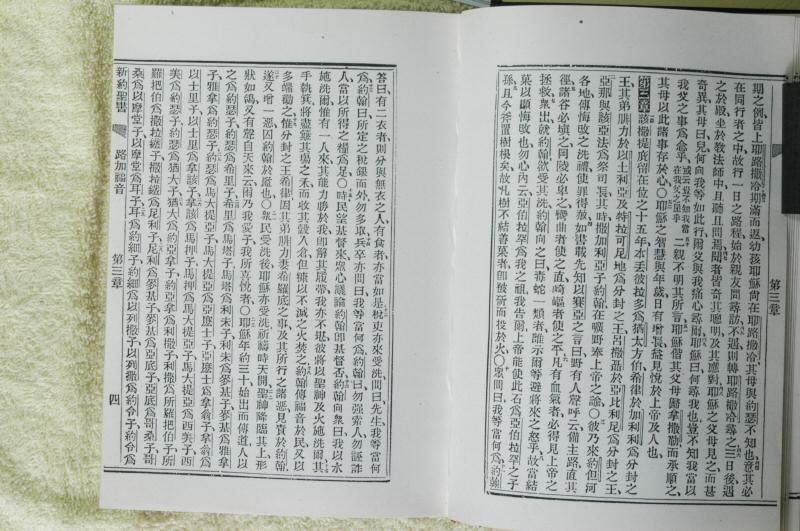 第三章
期之例、皆上耶路撒冷、期滿而返、幼孩耶穌尙在耶路撒冷、其母與約瑟不知也、意其必
在同行者之中、故行一日之路程、始於親友間尋訪、不遇、則轉耶路撒冷尋之、三日後、遇
之於殿、坐於敎法師中、且聽且問、聞者皆奇其聰明、及其應對、耶穌之父母見之、而甚
奇異、其母曰、兒、何向我等如此行、爾父與我痛心尋爾、耶穌曰、何尋我也、豈不知我當以
我父之事爲念乎、或云豈不知我當在我父之里乎二親不明其所言、耶穌偕其父母歸拿撒勒、而承順之、
其母以此諸事存於心、○耶穌之智慧與年歲、日有增長、益見悅於上帝及人也、
第三章該撒提庇留在位之十五年、本丟彼拉多爲猶太方伯、希律於加利利爲分封之
王、其弟腓力於以土利亞及特拉可尼地爲分封之王、呂撒聶於亞比利尼爲分封之王、
亞那與該亞法爲祭司長、其時撒加利亞子約翰在曠野奉上帝之諭、○彼乃來約但河
各地、傳悔改之洗禮、使罪得赦、如書載先知以賽亞之言曰、野有人聲呼云、備主路、直其
徑、諸谷必塡之、岡陵必卑之、彎曲者使之直、崎嶇者使之平、凡有血氣者、必得見上帝之
拯救、衆出就約翰欲受其洗、約翰向之曰、毒蛇一類者、誰示爾等避將來之怒乎、故當結
菓以顯悔改也、勿心內云、亞伯拉罕爲我之祖、我告爾、上帝能使此石爲亞伯拉罕之子
孫、且今斧置樹根矣、故凡樹不結善菓者、卽被斫而投於火、○衆問曰、我等當何爲、約翰
答曰、有二衣者、則分與無衣之人、有食者、亦當如是、稅吏亦來受洗、問曰、先生、我等當何
爲、約翰曰、於所定之稅銀而外、勿多取、兵卒亦問曰、我等當何爲、約翰曰、勿强索人、勿誣詐
人、當以所得之糧爲足、○時民望基督來、衆心議論約翰卽基督否、約翰向衆曰、我以水
施洗爾、惟有一人來、其能力勝於我、卽解其履帶、我亦不堪、彼將以聖神及火施洗爾、其
手執箕、將盡簸其塲之禾、而收其穀入倉、但糠以不滅之火焚之、約翰傳福音於民、又以
多端勸之、惟分封之王希律、因其弟腓力妻希羅底之事、及其所行之諸惡、見責於約翰、
遂又增一惡、囚約翰於監也、○衆民受洗後、耶穌亦受洗、祈禱時天開、聖神降臨其上、形
狀如鴿、又有聲自天來云、爾乃我愛子、我所喜悅者、○耶穌年約三十、始出而傳道、人以
之爲約瑟子、約瑟爲希里子、希里爲馬塔子、馬塔爲利未子、利未爲麥基子、麥基爲雅拿
子、雅拿爲約瑟子、約瑟爲馬大提亞子、馬大提亞爲亞麼士子、亞麼士爲拿翁子、拿翁爲
以士里子、以士里爲拿該子、拿該爲馬押子、馬押爲馬大提亞子、馬大提亞爲西美子、西
美爲約瑟子、約瑟爲猶大子、猶大爲約亞拿子、約亞拿爲利撒子、利撒爲所羅把伯子、所
羅把伯爲撒拉鐵子、撒拉鐵爲尼利子、尼利爲麥基子、麥基爲亞底子、亞底爲哥桑子、哥
桑爲以摩堂子、以摩堂爲耳子、耳爲約細子、約細爲以列撒子、以列撒爲約令子、約令爲
新約聖書
路加福音
第三章
四